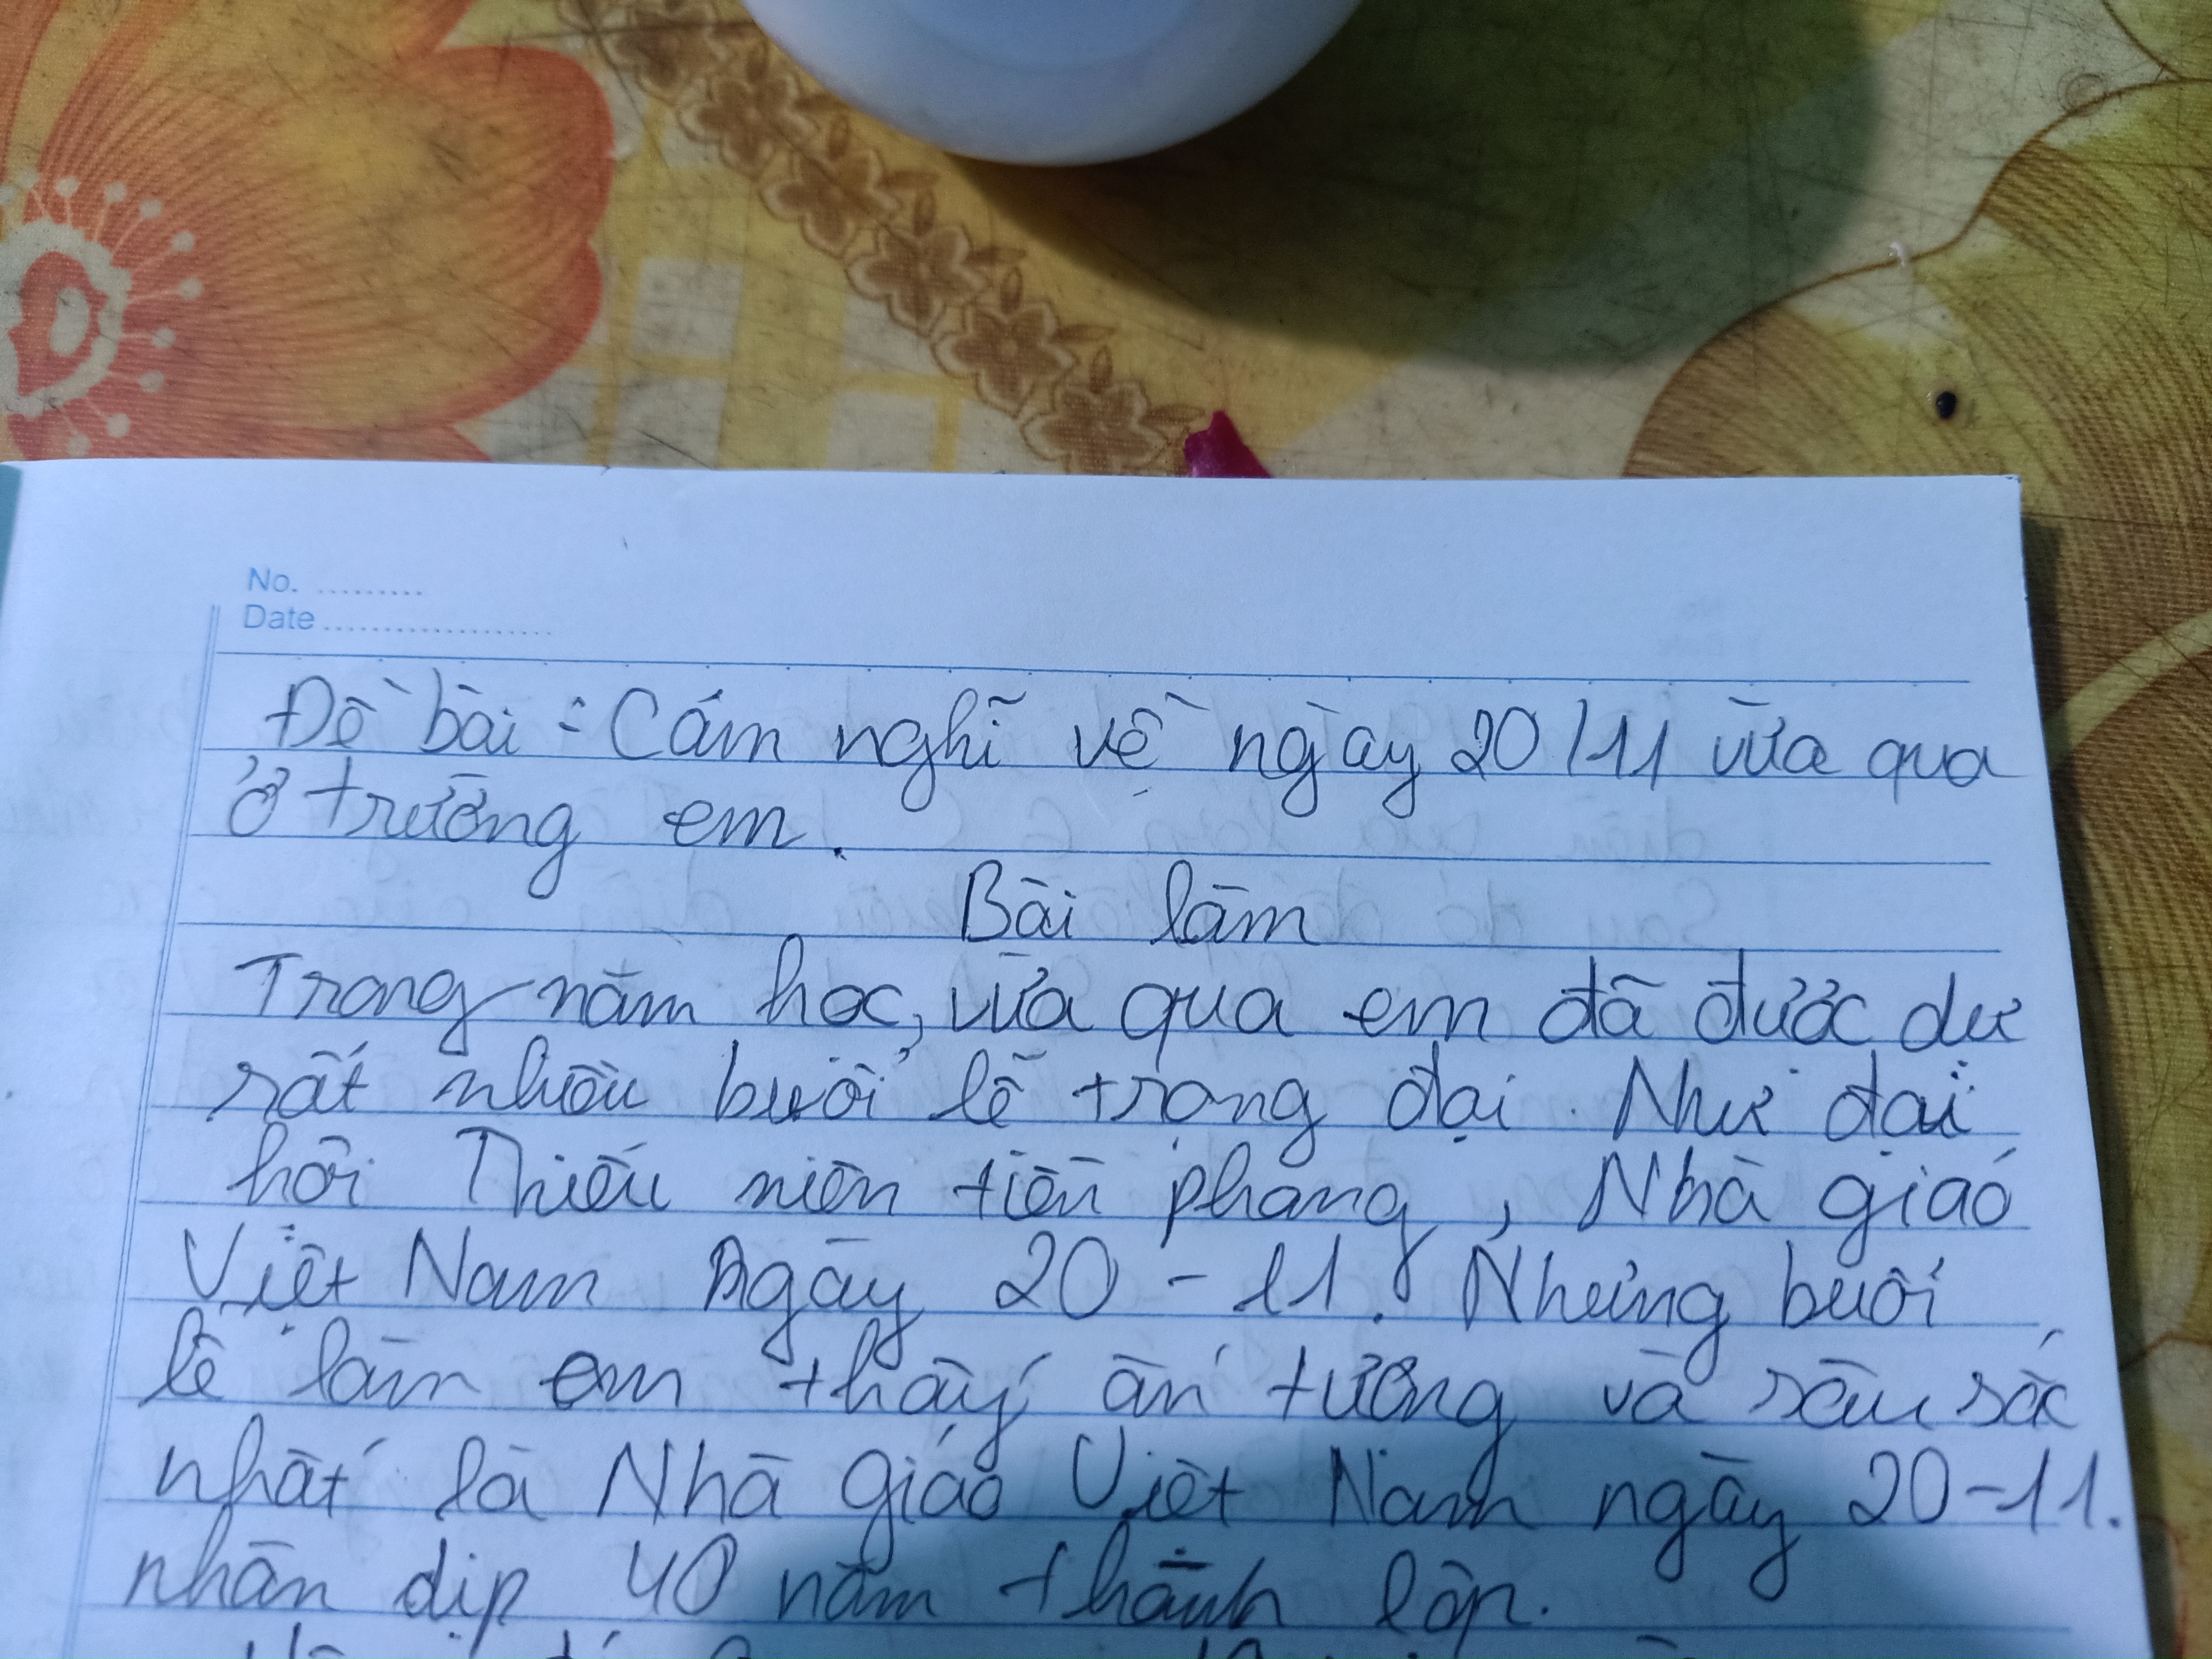 No. .........
Date ...................
Đề bài : Cảm nghĩ về ngày 20/11 vừa qua
ở trường em.
Bài làm
Trong năm học, vừa qua em đã được dự
rất nhiều buổi lễ trọng đại. Như đại
hội Thiếu niên tiền phong, Nhà giáo
Việt Nam Ngày 20-11. Những buổi
lễ làm em thấy ấn tượng và sâu sắc
nhất là Nhà giáo Việt Nam ngày 20-11.
nhân dịp 40 năm thành lập.